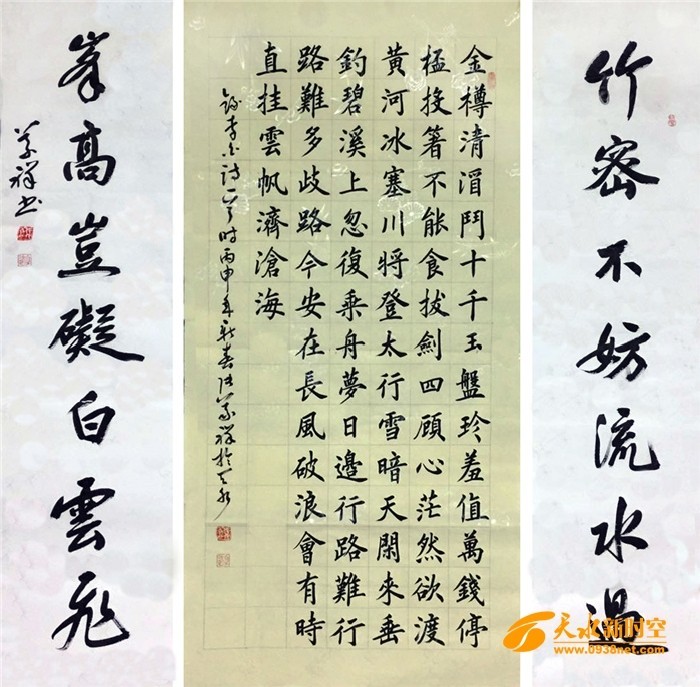 竹密不妨流水過
金樽清酒鬥十千玉盤珍羞值萬錢停
杯投箸不能食拔劍四顧心茫然欲渡
黃河冰塞川將登太行雪暗天閑來垂
釣碧溪上忽復乘舟夢日邊行路難行
路難多歧路今安在長風破浪會有時
直挂雲帆濟滄海
錄李白詩一首時丙申年新春祥於天水
峯高豈礙白雲飛
祥書
天水新时空
www.0938net.com